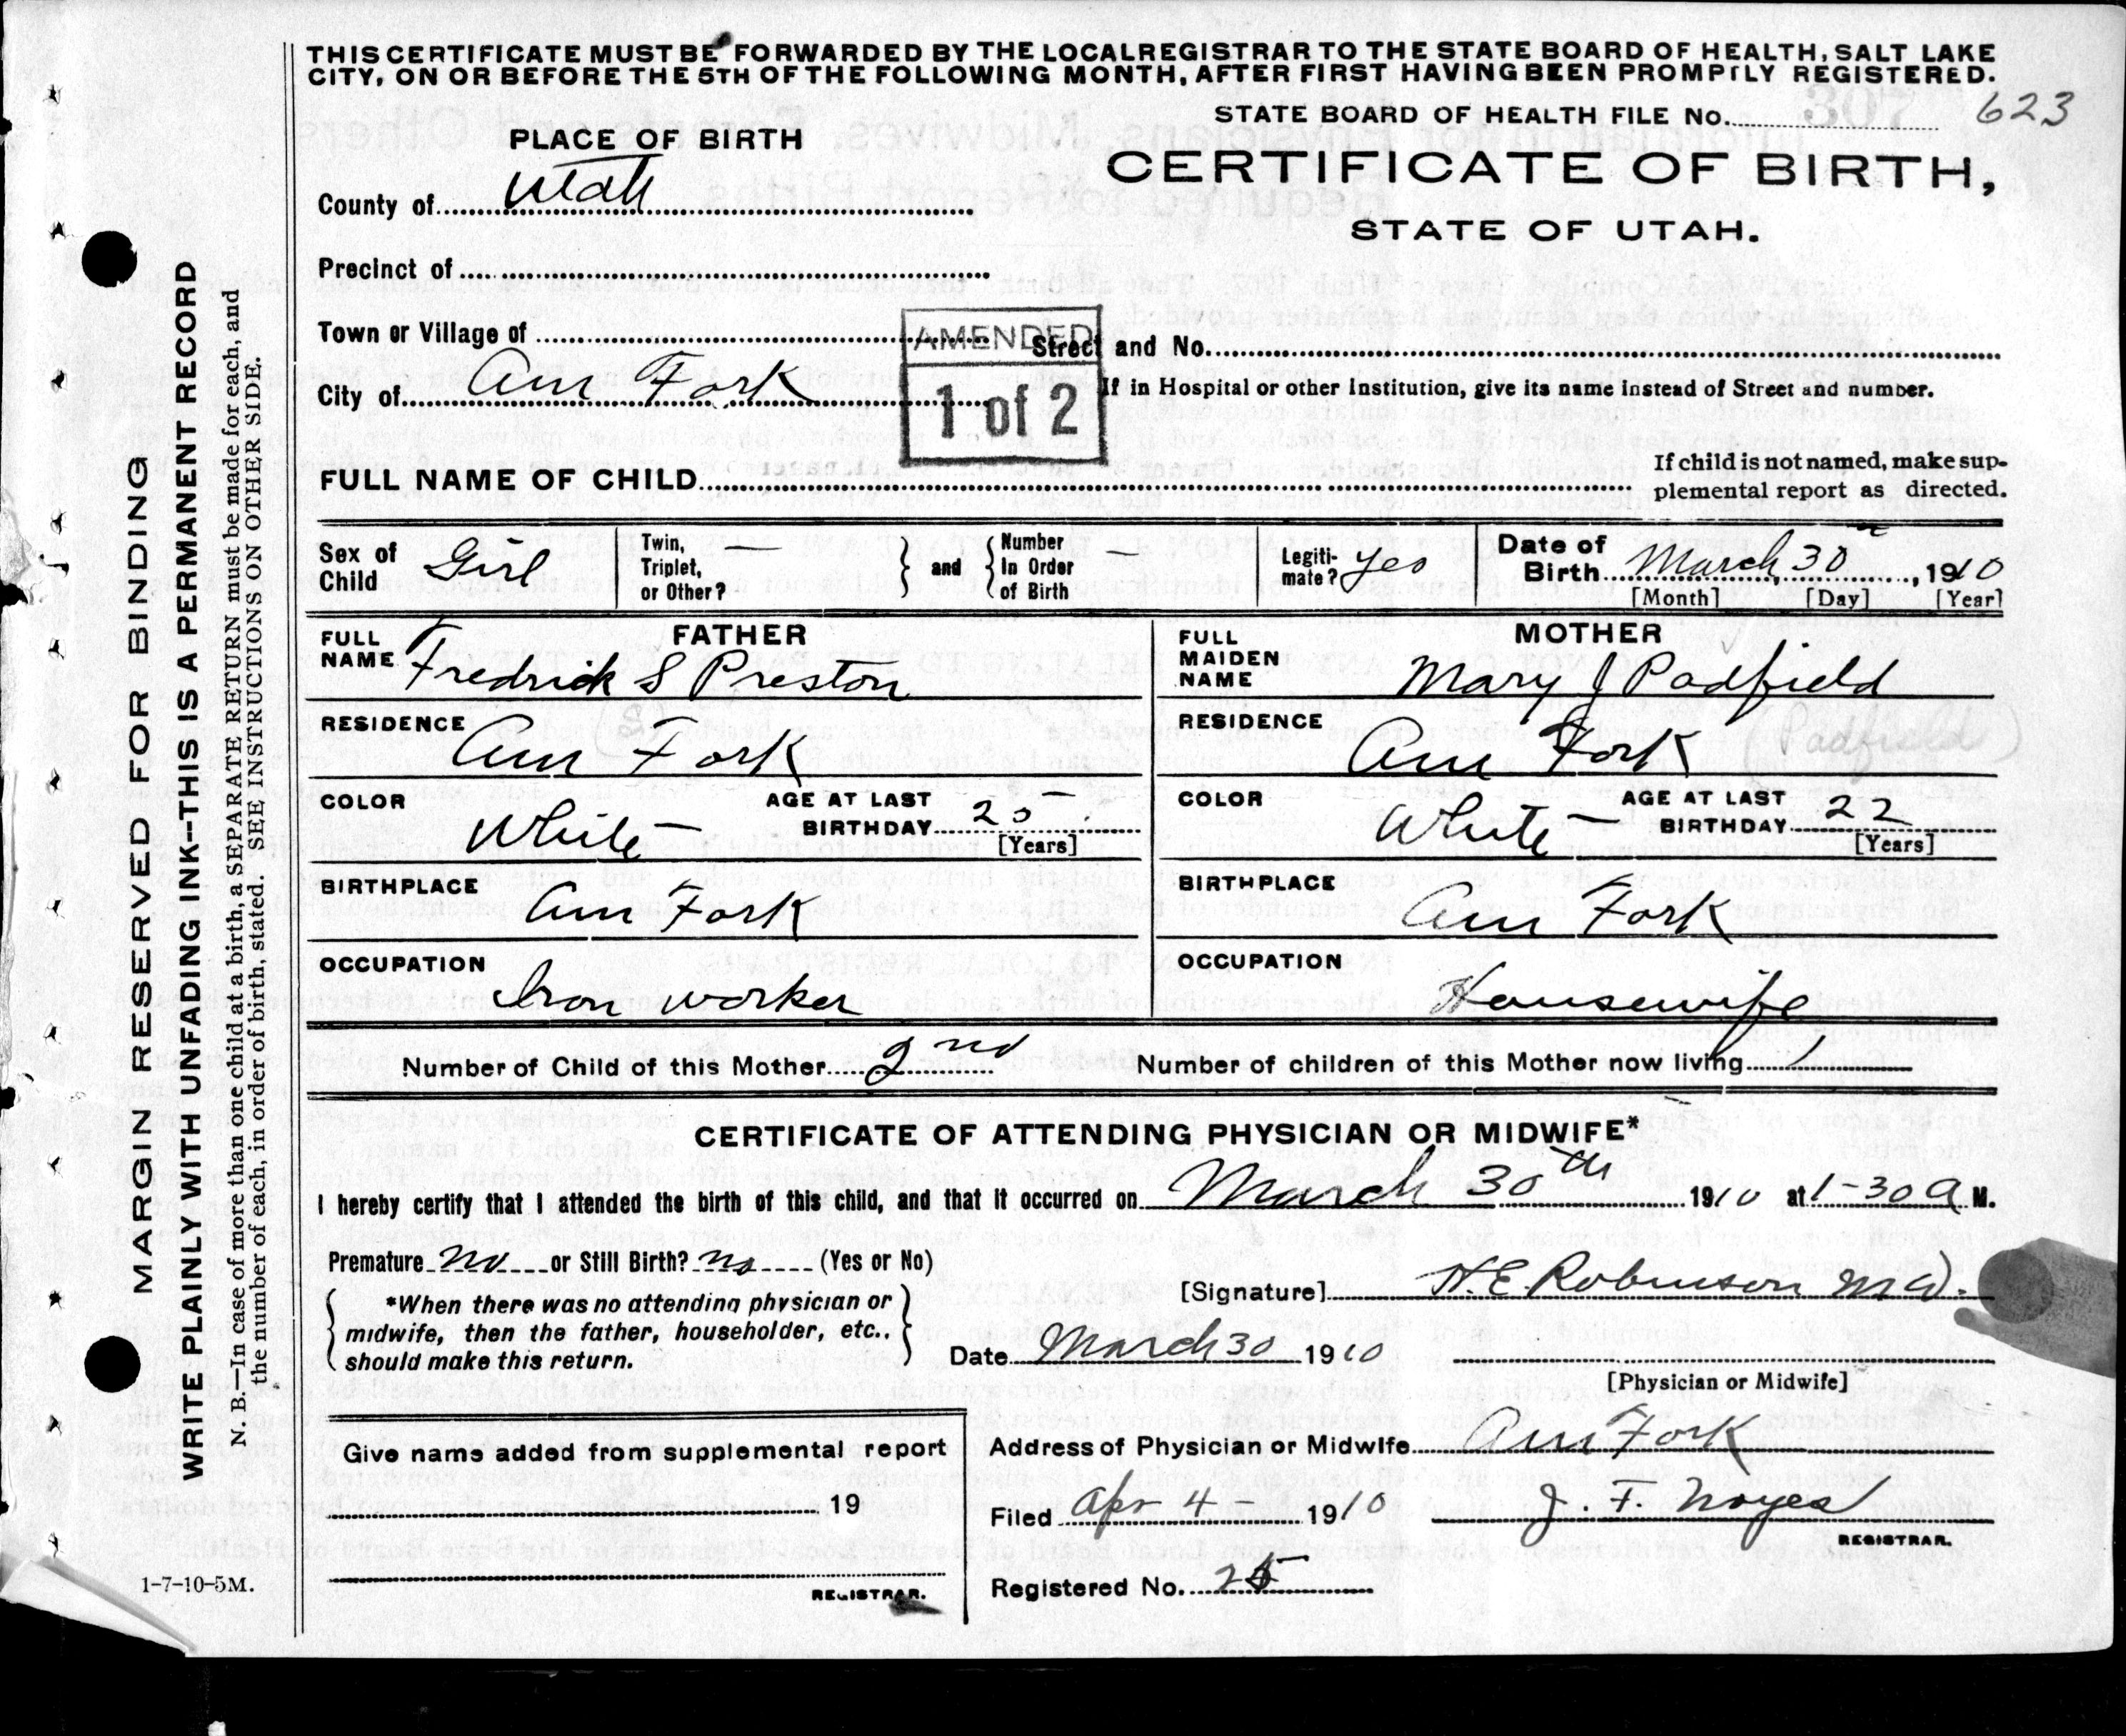 THIS CERTIFICATE MUST BE FORWARDED BY THE LOCAL REGISTRAR TO THE STATE BOARD OF HEALTH, SALT LAKE
CITY, ON OR BEFORE THE 5TH OF THE FOLLOWING MONTH, AFTER FIRST HAVING BEEN PROMPTLY REGISTERED.
STATE BOARD OF HEALTH FILE No. 623
PLACE OF BIRTH
CERTIFICATE OF BIRTH,
County of Utah
STATE OF UTAH.
Precinct of
Town or Village of
AMENDED
1 of 2
Street and No.
City of Am Fork
If in Hospital or other Institution, give its name instead of Street and number.
FULL NAME OF CHILD
If child is not named, make sup-
plemental report as directed.
Sex of Child Girl
Twin, Triplet, or Other? —
and
Number In Order of Birth —
Legiti-mate? yes
Date of Birth March 30, 1910
[Month] [Day] [Year]
FATHER
FULL NAME Fredrick S Preston
(S)
RESIDENCE Am Fork
COLOR White
AGE AT LAST BIRTHDAY 25
[Years]
BIRTHPLACE Am Fork
OCCUPATION Iron worker
MOTHER
FULL MAIDEN NAME Mary J Padfield
(Padfield)
RESIDENCE Am Fork
COLOR White
AGE AT LAST BIRTHDAY 22
[Years]
BIRTHPLACE Am Fork
OCCUPATION Housewife
Number of Child of this Mother 2nd
Number of children of this Mother now living 1
CERTIFICATE OF ATTENDING PHYSICIAN OR MIDWIFE*
I hereby certify that I attended the birth of this child, and that it occurred on March 30th 1910 at 1-30 a M.
Premature no or Still Birth? no (Yes or No)
*When there was no attending physician or
midwife, then the father, householder, etc.,
should make this return.
[Signature] H. E. Robinson MD.
Date March 30 1910
[Physician or Midwife]
Give name added from supplemental report
19
REGISTRAR.
Address of Physician or Midwife Am Fork
Filed Apr 4 - 1910
J. F. Noyes
REGISTRAR.
Registered No. 25
MARGIN RESERVED FOR BINDING
WRITE PLAINLY WITH UNFADING INK--THIS IS A PERMANENT RECORD
N. B.—In case of more than one child at a birth, a SEPARATE RETURN must be made for each, and
the number of each, in order of birth, stated. SEE INSTRUCTIONS ON OTHER SIDE.
1-7-10-5M.